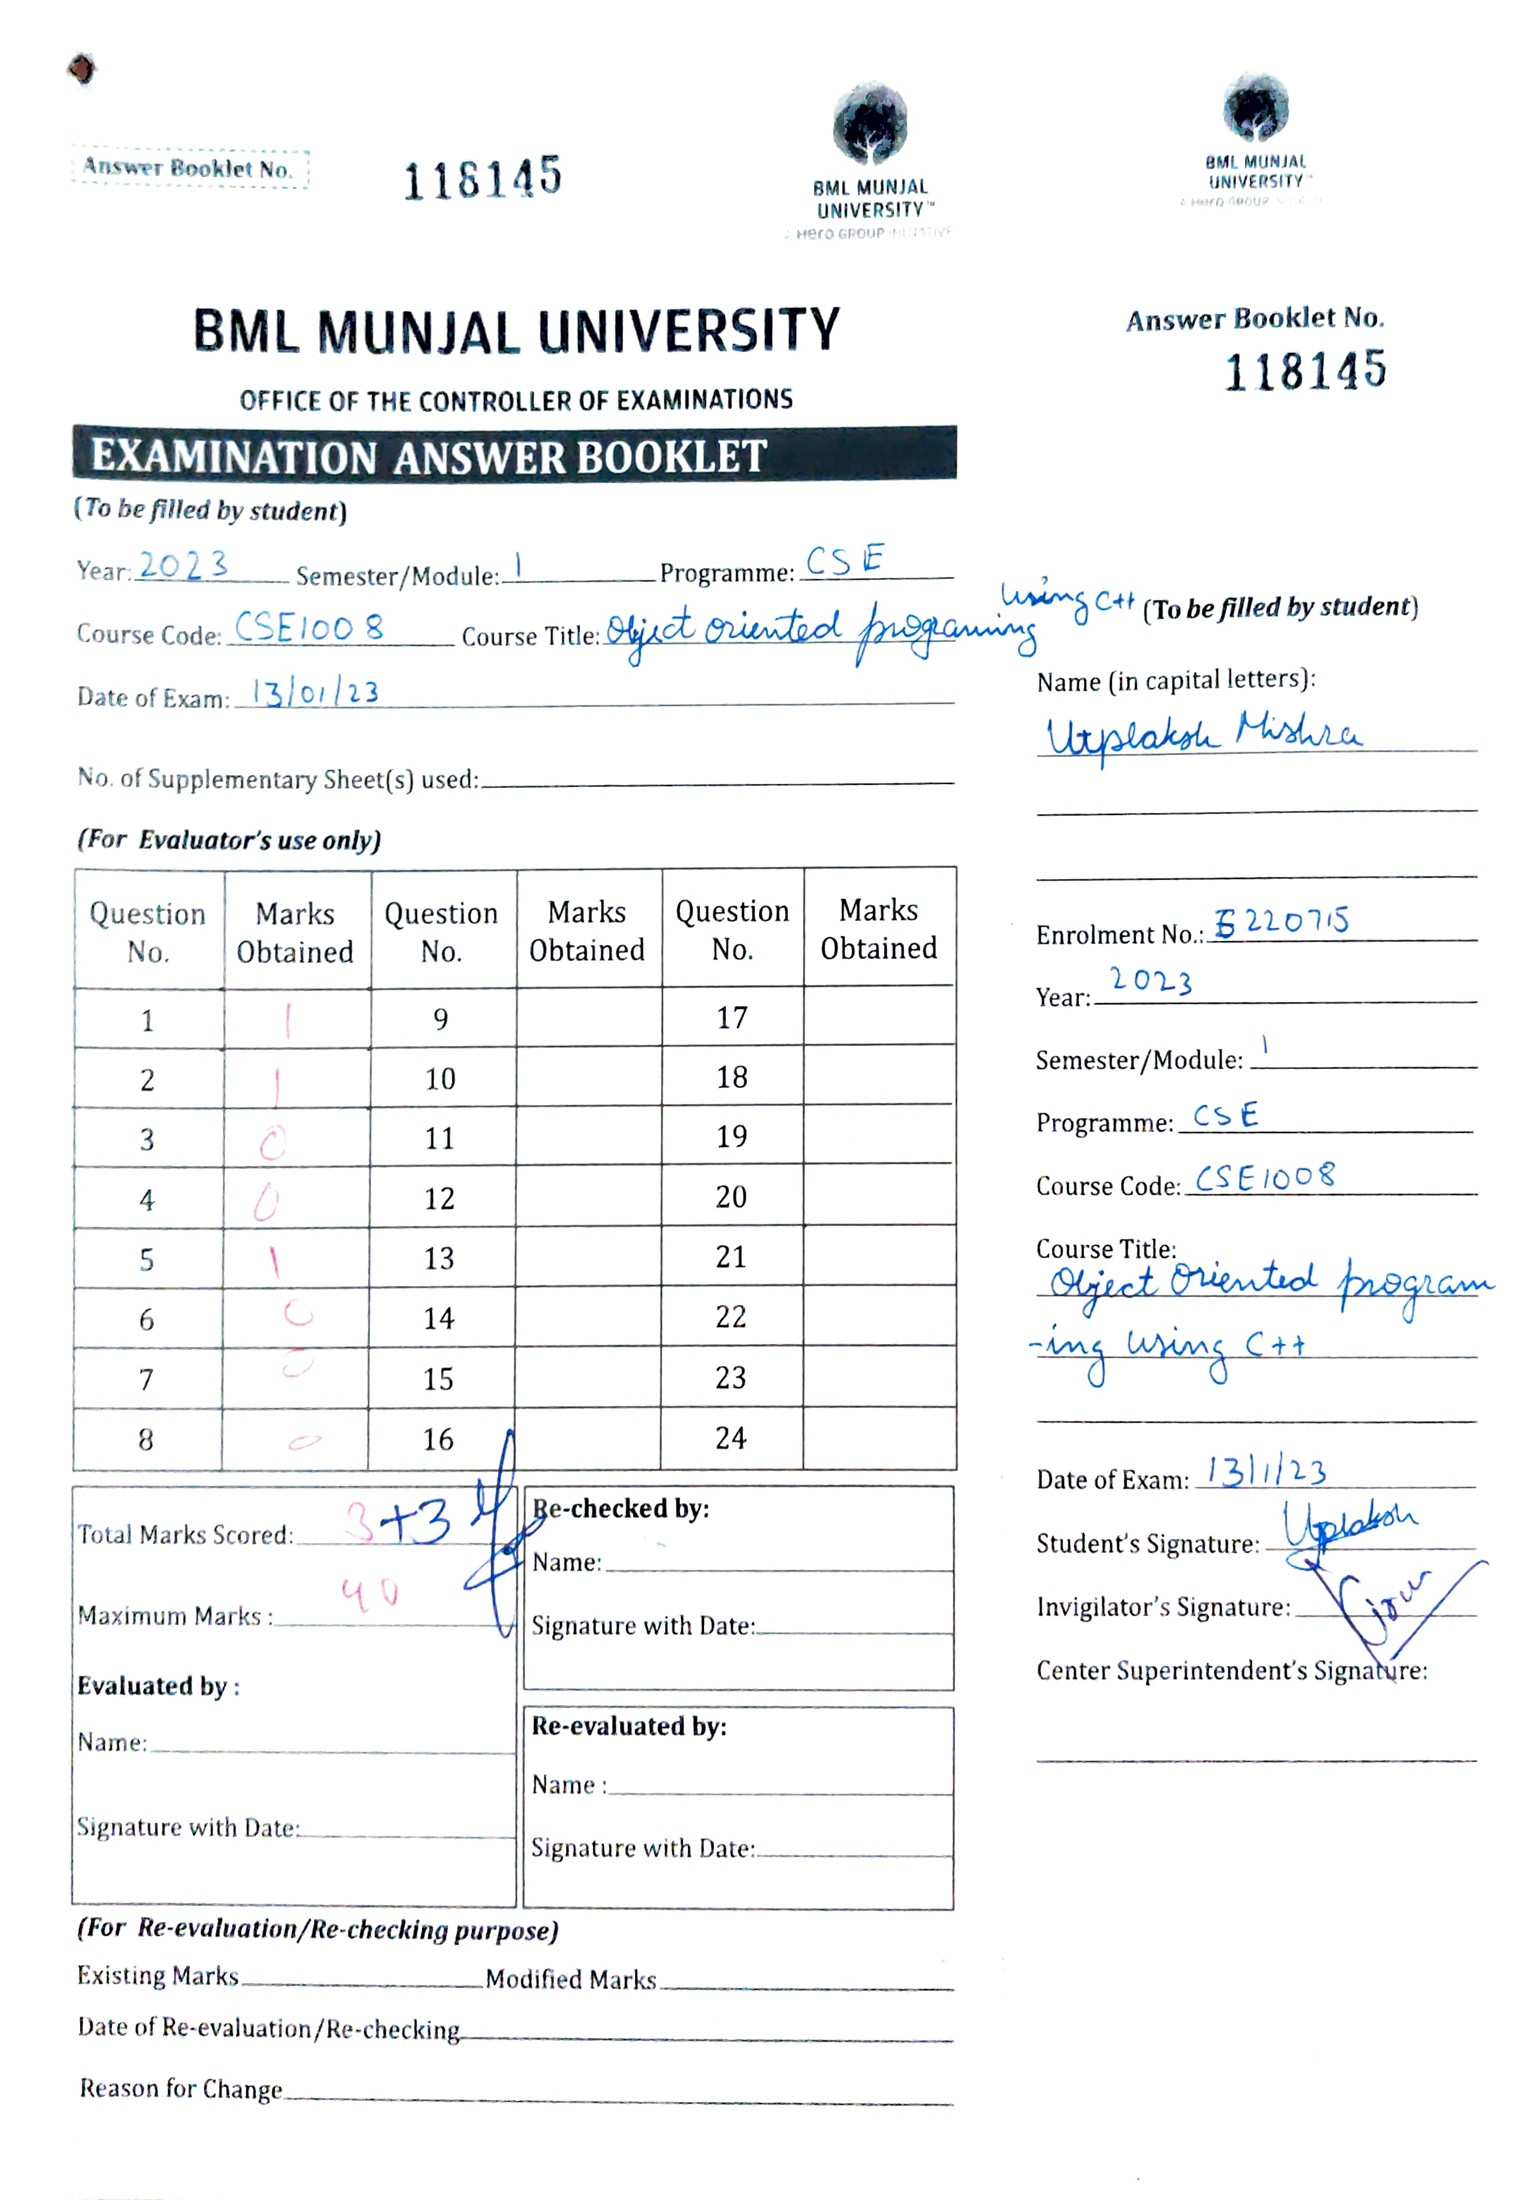 Answer Booklet No.
118145
BML MUNJAL
UNIVERSITY™
A Hero GROUP INITIATIVE
BML MUNJAL
UNIVERSITY™
A Hero GROUP
BML MUNJAL UNIVERSITY
OFFICE OF THE CONTROLLER OF EXAMINATIONS
EXAMINATION ANSWER BOOKLET
(To be filled by student)
Year: 2023 Semester/Module: 1 Programme: CSE
Course Code: CSE1008 Course Title: Object oriented programing using C++
Date of Exam: 13/01/23
No. of Supplementary Sheet(s) used:
(For Evaluator's use only)
Question No. Marks Obtained Question No. Marks Obtained Question No. Marks Obtained
1 1 9 17
2 1 10 18
3 0 11 19
4 0 12 20
5 1 13 21
6 0 14 22
7 0 15 23
8 0 16 24
Total Marks Scored: 3+3
Maximum Marks : 40
Evaluated by :
Name:
Signature with Date:
Re-checked by:
Name:
Signature with Date:
Re-evaluated by:
Name :
Signature with Date:
(For Re-evaluation/Re-checking purpose)
Existing Marks Modified Marks
Date of Re-evaluation/Re-checking
Reason for Change
Answer Booklet No.
118145
(To be filled by student)
Name (in capital letters):
Utplaksh Mishra
Enrolment No.: E220715
Year: 2023
Semester/Module: 1
Programme: CSE
Course Code: CSE1008
Course Title:
Object Oriented program
-ing using C++
Date of Exam: 13/1/23
Student's Signature: Utplaksh
Invigilator's Signature:
Center Superintendent's Signature: